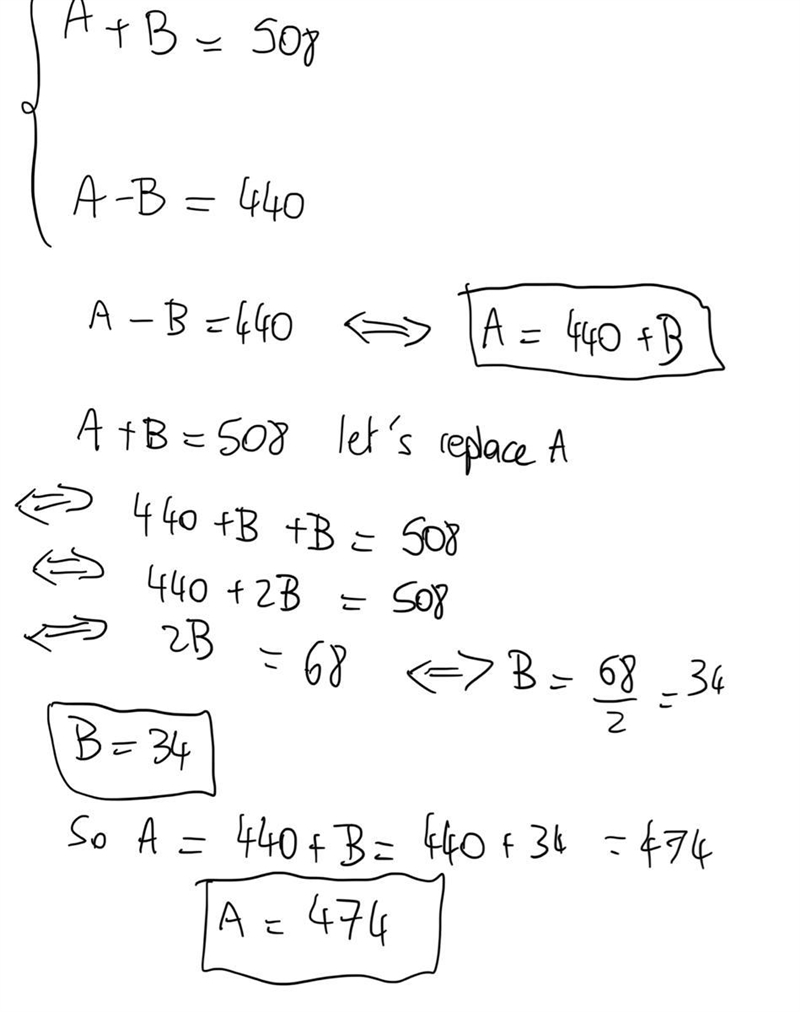 A + B = 508
A - B = 440
A - B = 440 ⟺ A = 440 + B
A + B = 508 let's replace A
⟺ 440 + B + B = 508
⟺ 440 + 2B = 508
⟺ 2B = 68 ⟺ B = 68/2 = 34
B = 34
So A = 440 + B = 440 + 34 = 474
A = 474